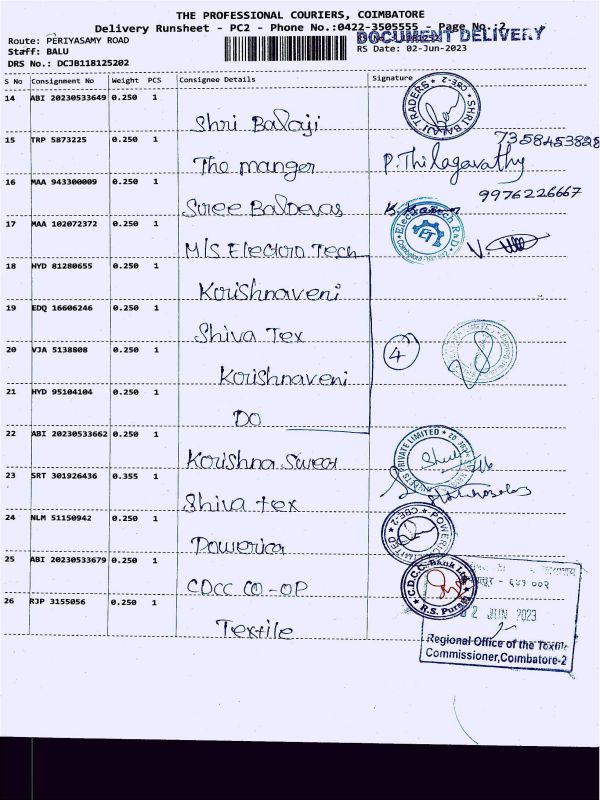 THE PROFESSIONAL COURIERS, COIMBATORE
Delivery Runsheet - PC2 - Phone No.:0422-3505555 - Page No.:2
DOCUMENT DELIVERY
Route: PERIYASAMY ROAD
Staff: BALU
RS Date: 02-Jun-2023
DRS No.: DCJB118125202
S No Consignment No Weight PCS Consignee Details Signature
14 ABI 20230533649 0.250 1
Shri Balaji
SHRI BALAJI TRADERS CBE-2
15 TRP 5873225 0.250 1
7358453828
The manger
P.Thilagavathy
16 MAA 943300009 0.250 1
9976226667
Sree Baldevas
17 MAA 102072372 0.250 1
M/S. Electora Tech
Electora Tech R&D
ET
18 HYD 81280655 0.250 1
Korishnaveni
19 EDQ 16606246 0.250 1
Shiva Tex
4
20 VJA 5138808 0.250 1
Korishnaveni
21 HYD 95104104 0.250 1
DO
22 ABI 20230533662 0.250 1
Korishna Sweet
PRIVATE LIMITED
23 SRT 301926436 0.355 1
Shiva tex
24 NLM 51150942 0.250 1
Powerica
POWERICA LIMITED CBE-2
25 ABI 20230533679 0.250 1
CDCC CO-OP
C.D.C.C. Bank Ltd.
R.S. Puram
- ६४१ ००२
26 RJP 3155056 0.250 1
2 JUN 2023
Textile
Regional Office of the Textile
Commissioner,Coimbatore-2